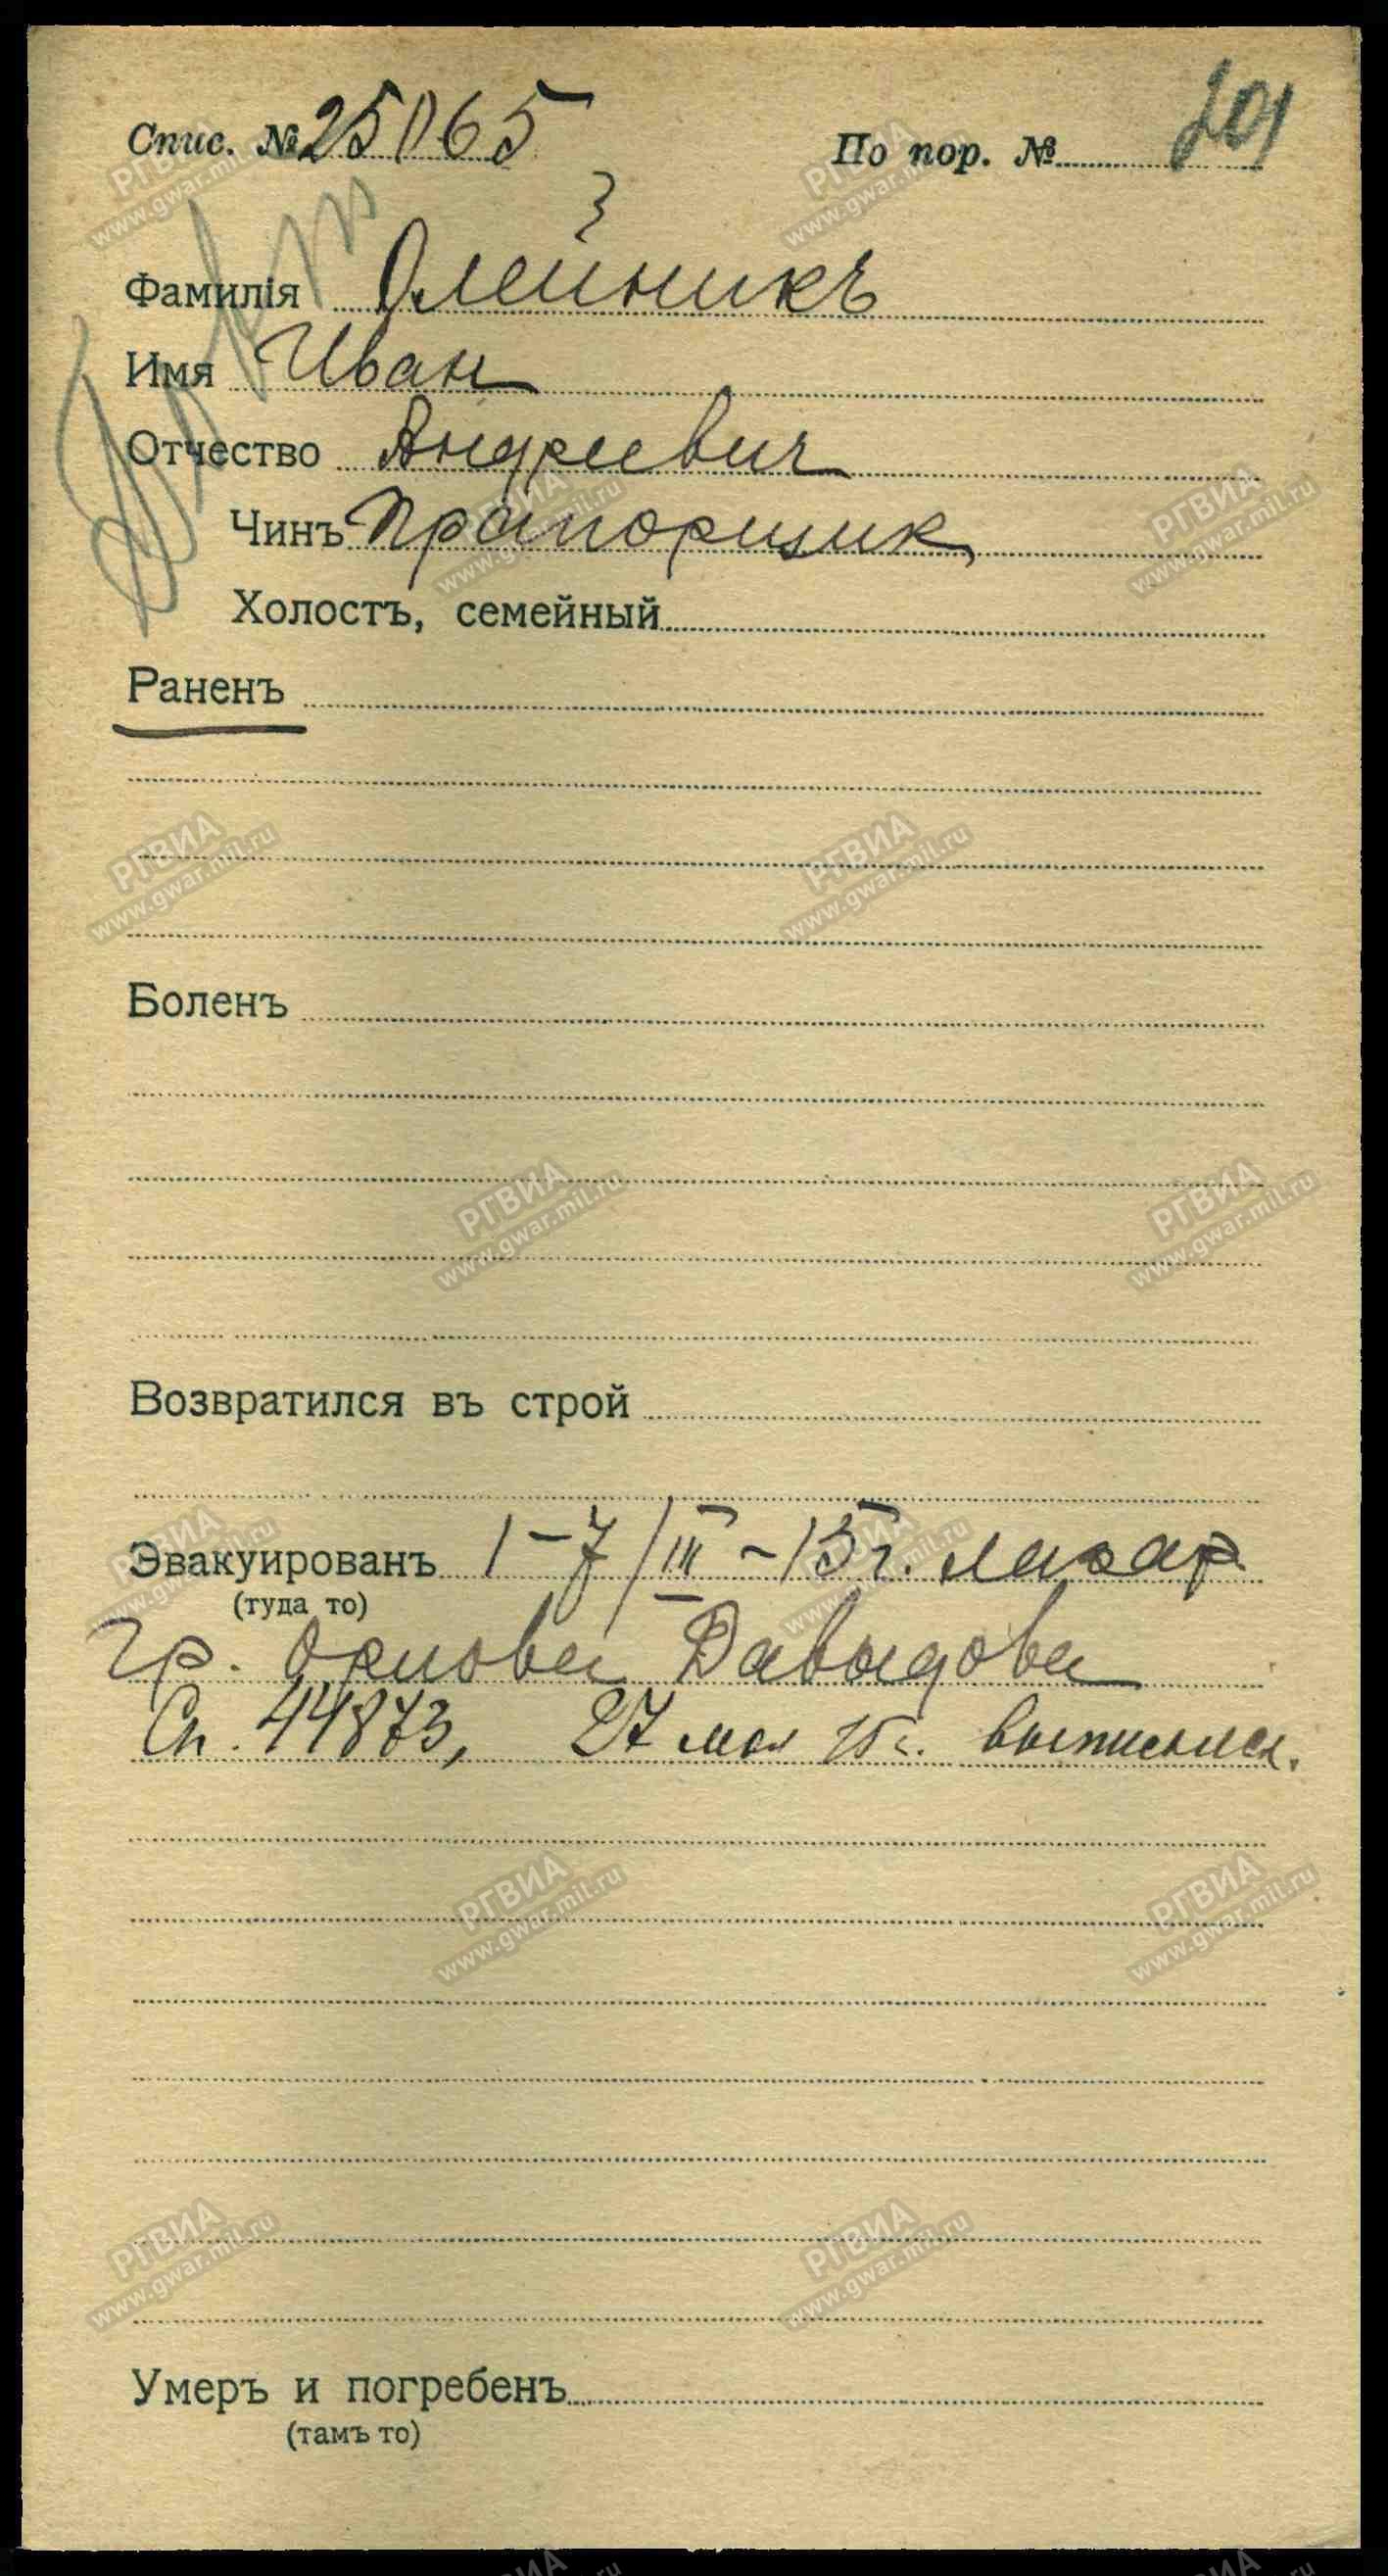 Спис. № 25065
По пор. № 201
Фамилія Олейникъ
Имя Иван
Отчество Андреевич
Чинъ Прапорщик
Холостъ, семейный
Раненъ
Боленъ
Возвратился въ строй
Эвакуированъ 1-7/III-15 г. лазар
(туда то)
гр. Орловой Давыдовой
Сп. 44873, 27 мая 15 г. выписался.
Умеръ и погребенъ
(тамъ то)
РГВИА
www.gwar.mil.ru